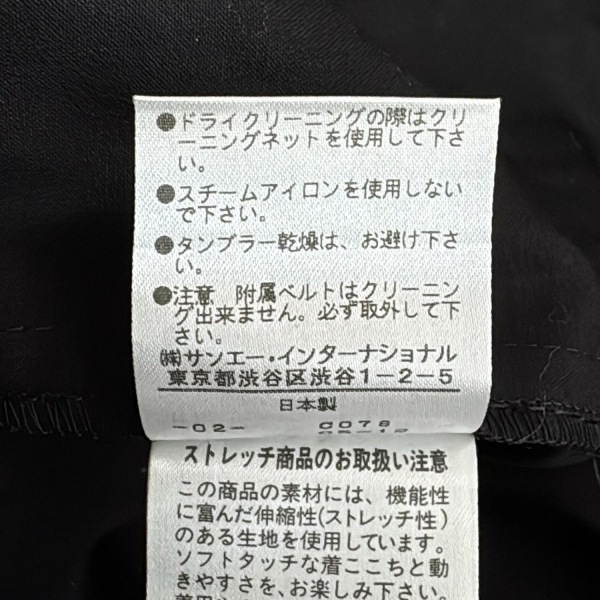 ●ドライクリーニングの際はクリ
ーニングネットを使用して下さ
い。
●スチームアイロンを使用しない
で下さい。
●タンブラー乾燥は、お避け下さ
い。
●注意　附属ベルトはクリーニン
グ出来ません。必ず取外して下
さい。
㈱サンエー・インターナショナル
東京都渋谷区渋谷1-2-5
日本製
-02- C078
ストレッチ商品のお取扱い注意
この商品の素材には、機能性
に富んだ伸縮性(ストレッチ性)
のある生地を使用しています。
ソフトタッチな着ここちと動
きやすさを、お楽しみ下さい。